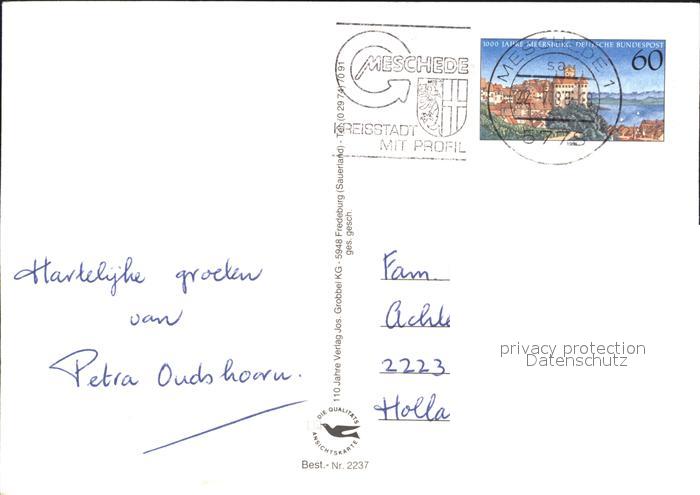 MESCHEDE
KREISSTADT
MIT PROFIL
1000 JAHRE MEERSBURG, DEUTSCHE BUNDESPOST
60
MESCHEDE 1
sa
Hartelijke groeten
van
Petra Oudshoorn.
110 Jahre Verlag Jos. Grobbel KG - 5948 Fredeburg (Sauerland) - Tel. (0 29 74) 70 91
ges. gesch.
Fam.
Achte
2223
Holla
privacy protection
Datenschutz
DIE QUALITÄTS
ANSICHTSKARTE
Best.- Nr. 2237